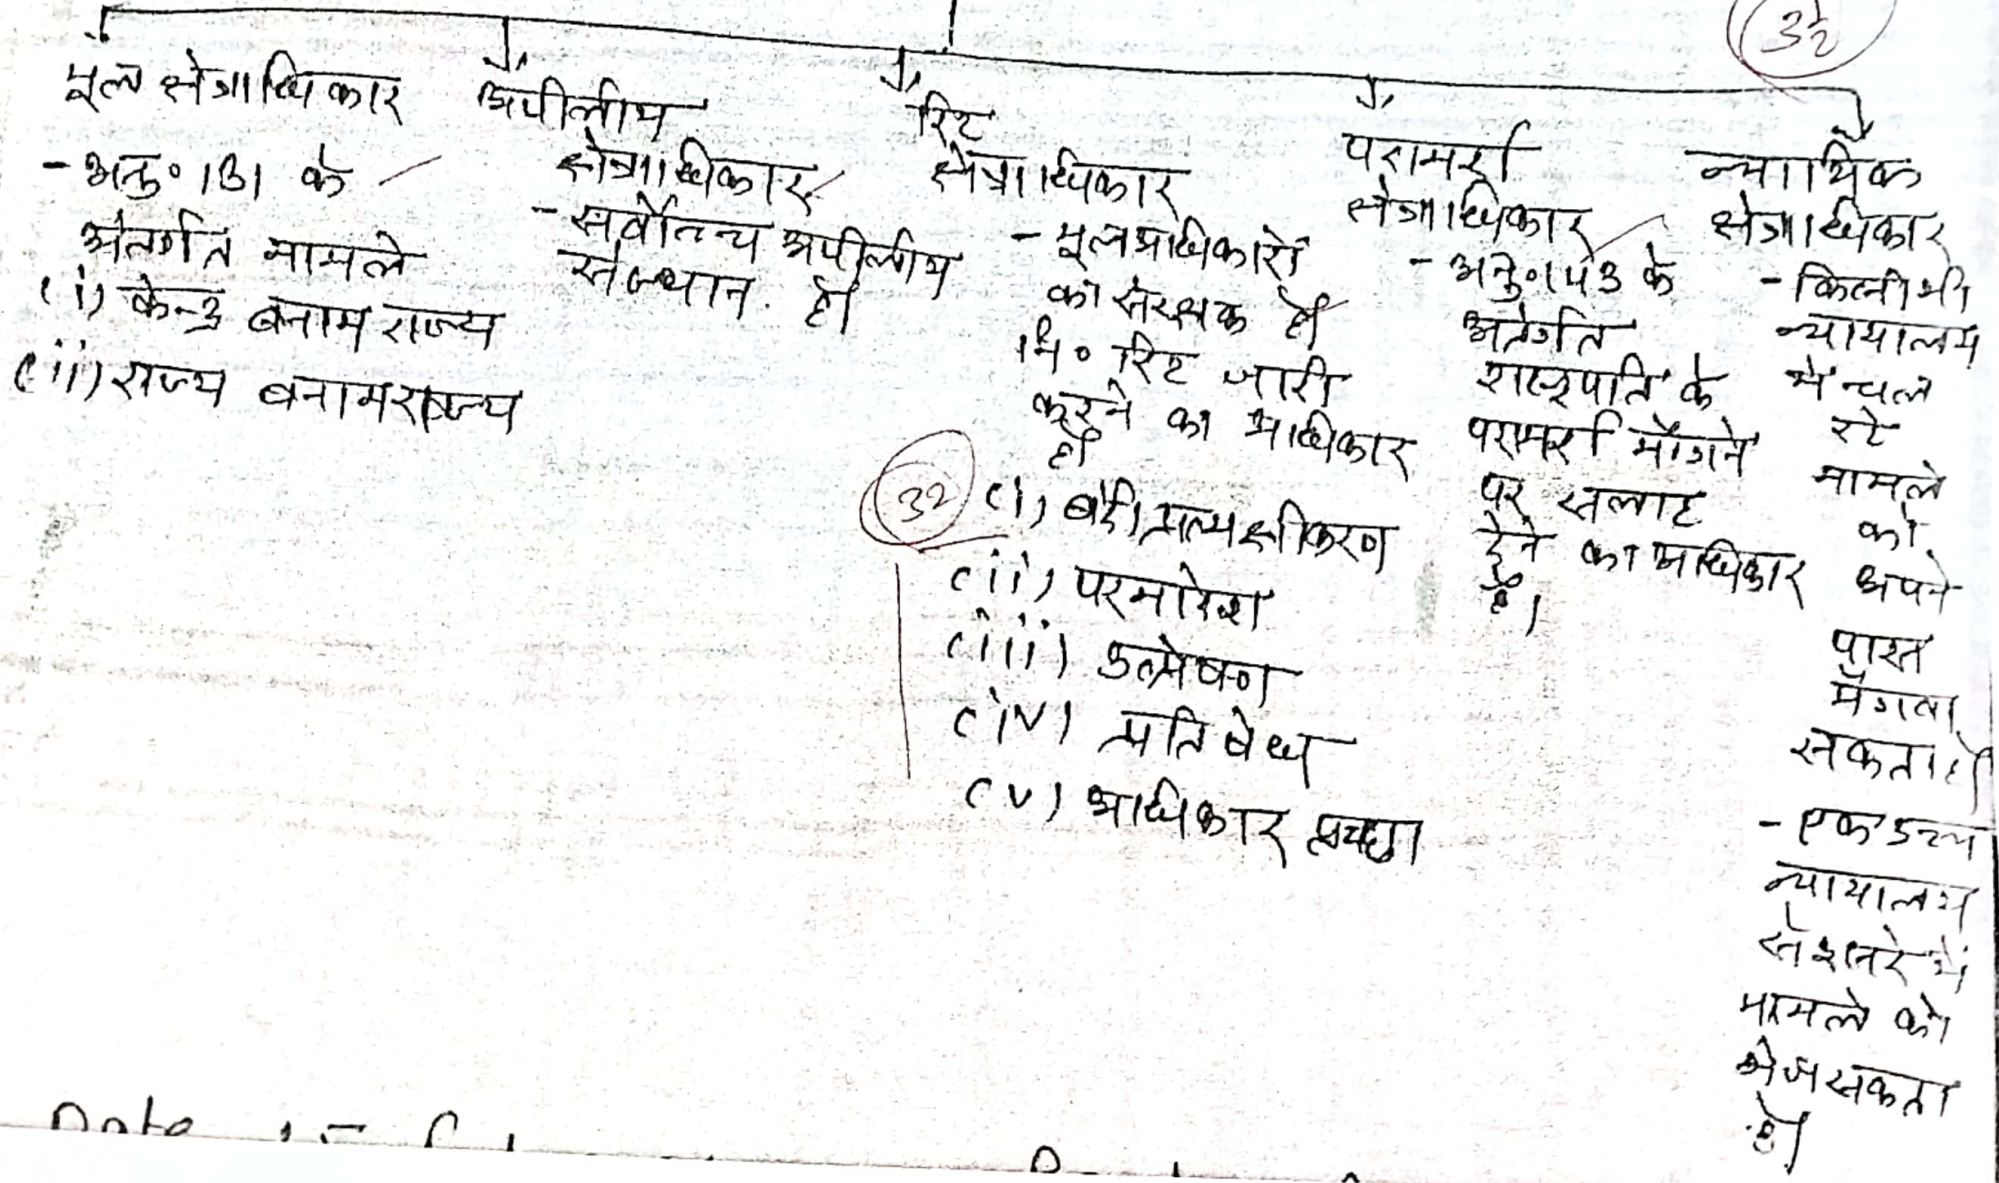 3½
मूल क्षेत्राधिकार
- अनु० 131 के
अंतर्गत मामले
(i) केन्द्र बनाम राज्य
(ii) राज्य बनाम राज्य
अपीलीय
क्षेत्राधिकार
- सर्वोच्च अपीलीय
संस्थान है।
रिट
क्षेत्राधिकार
- मूल अधिकारों
का संरक्षक है।
रिट जारी
करने का अधिकार
है।
32
(i) बंदी प्रत्यक्षीकरण
(ii) परमादेश
(iii) उत्प्रेषण
(iv) प्रतिषेध
(v) अधिकार पृच्छा
परामर्श
क्षेत्राधिकार
- अनु० 143 के
अंतर्गत
राष्ट्रपति के
परामर्श माँगने
पर सलाह
देने का अधिकार
है।
न्यायिक
क्षेत्राधिकार
- किसी भी
न्यायालय
में चल
रहे
मामले
को
अपने
पास
मँगवा
सकता है।
- एक उच्च
न्यायालय
से दूसरे में
मामले को
भेज सकता
है।
Date